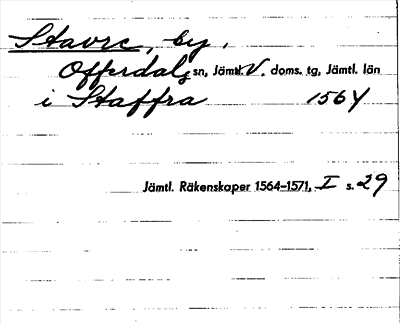 Stavre, by,
Offerdals sn, Jämtl. V. doms. tg, Jämtl. län
i Staffra 1564
Jämtl. Räkenskaper 1564–1571, I s. 29